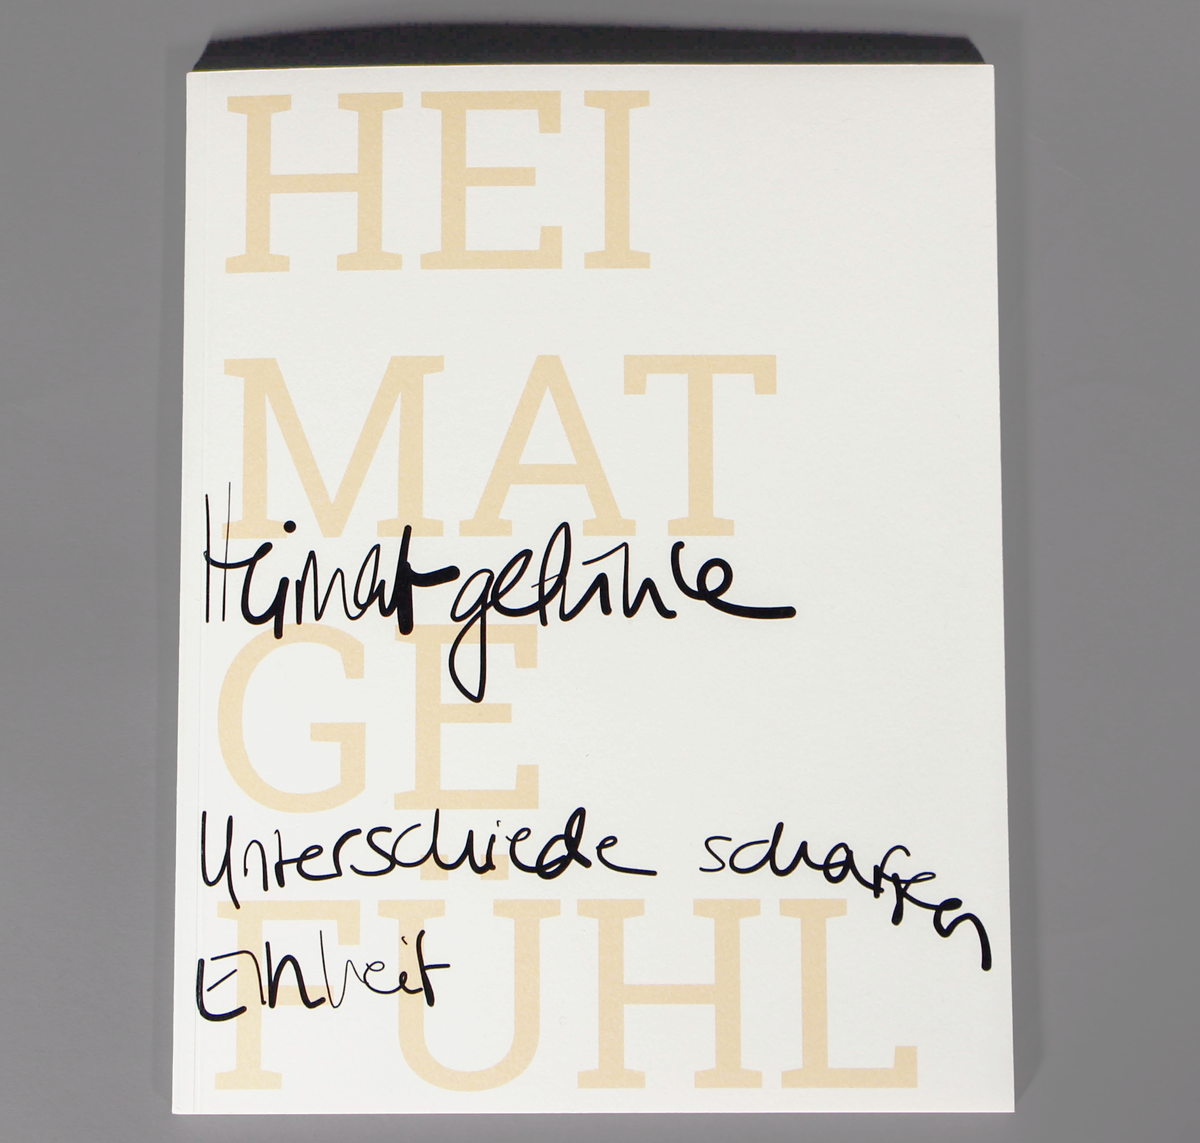 HEI
MAT
Heimatgefühle
GE
Unterschiede schaffen
FÜHL
Einheit